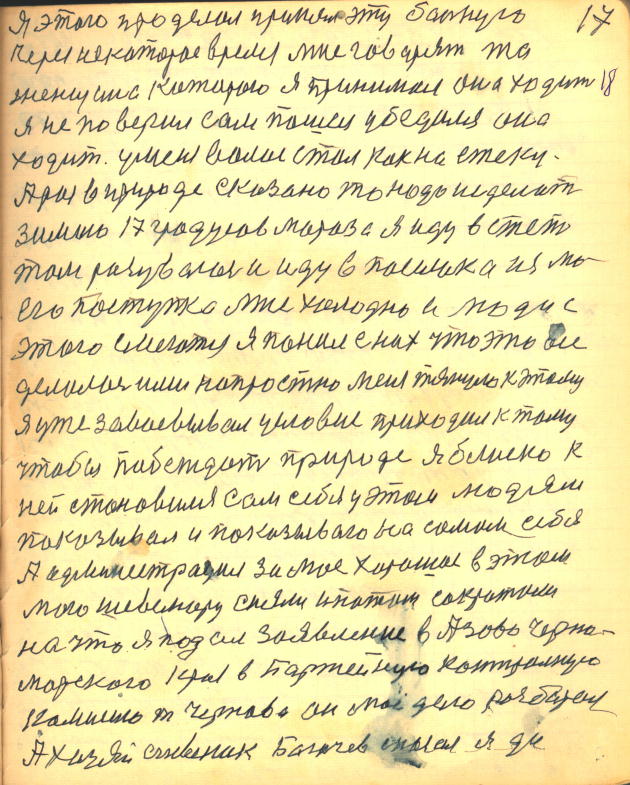 Я этого проделал принял эту больную 17
Через некоторое время мне говарят та
женщина которого я принимал она ходит 18
я не поверил сам пошел убедился она
ходит. у меня волос стал как на
А раз в природе сказано то надо и делать
зимою 17 градусов мароза я иду в степ
там разувался и иду в
его поступка мне холодно и люди с
этого смеются я понял с них что это
делалося или напростно меня тянуло к этому
я уже завоевывал условие приходил к тому
чтобы побеждать природе я близко к
ней становился сам себя у этом людям
показывал и показываю на самом себя
А администрация за мое хорошое в этом
мого сняли и потом сократили
на что я подал заявление в Азово Черно-
морского Края в Партейную контрольную
комисию т Чернова он мой дело розбирал
А хозяй Богачев я да